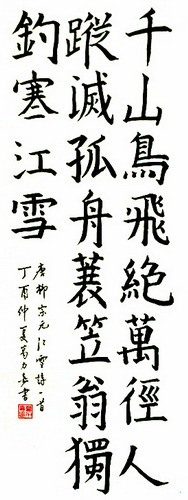 千山鳥飛絶萬徑人
蹤滅孤舟蓑笠翁獨
釣寒江雪
唐柳宗元江雪詩一首
丁酉仲夏